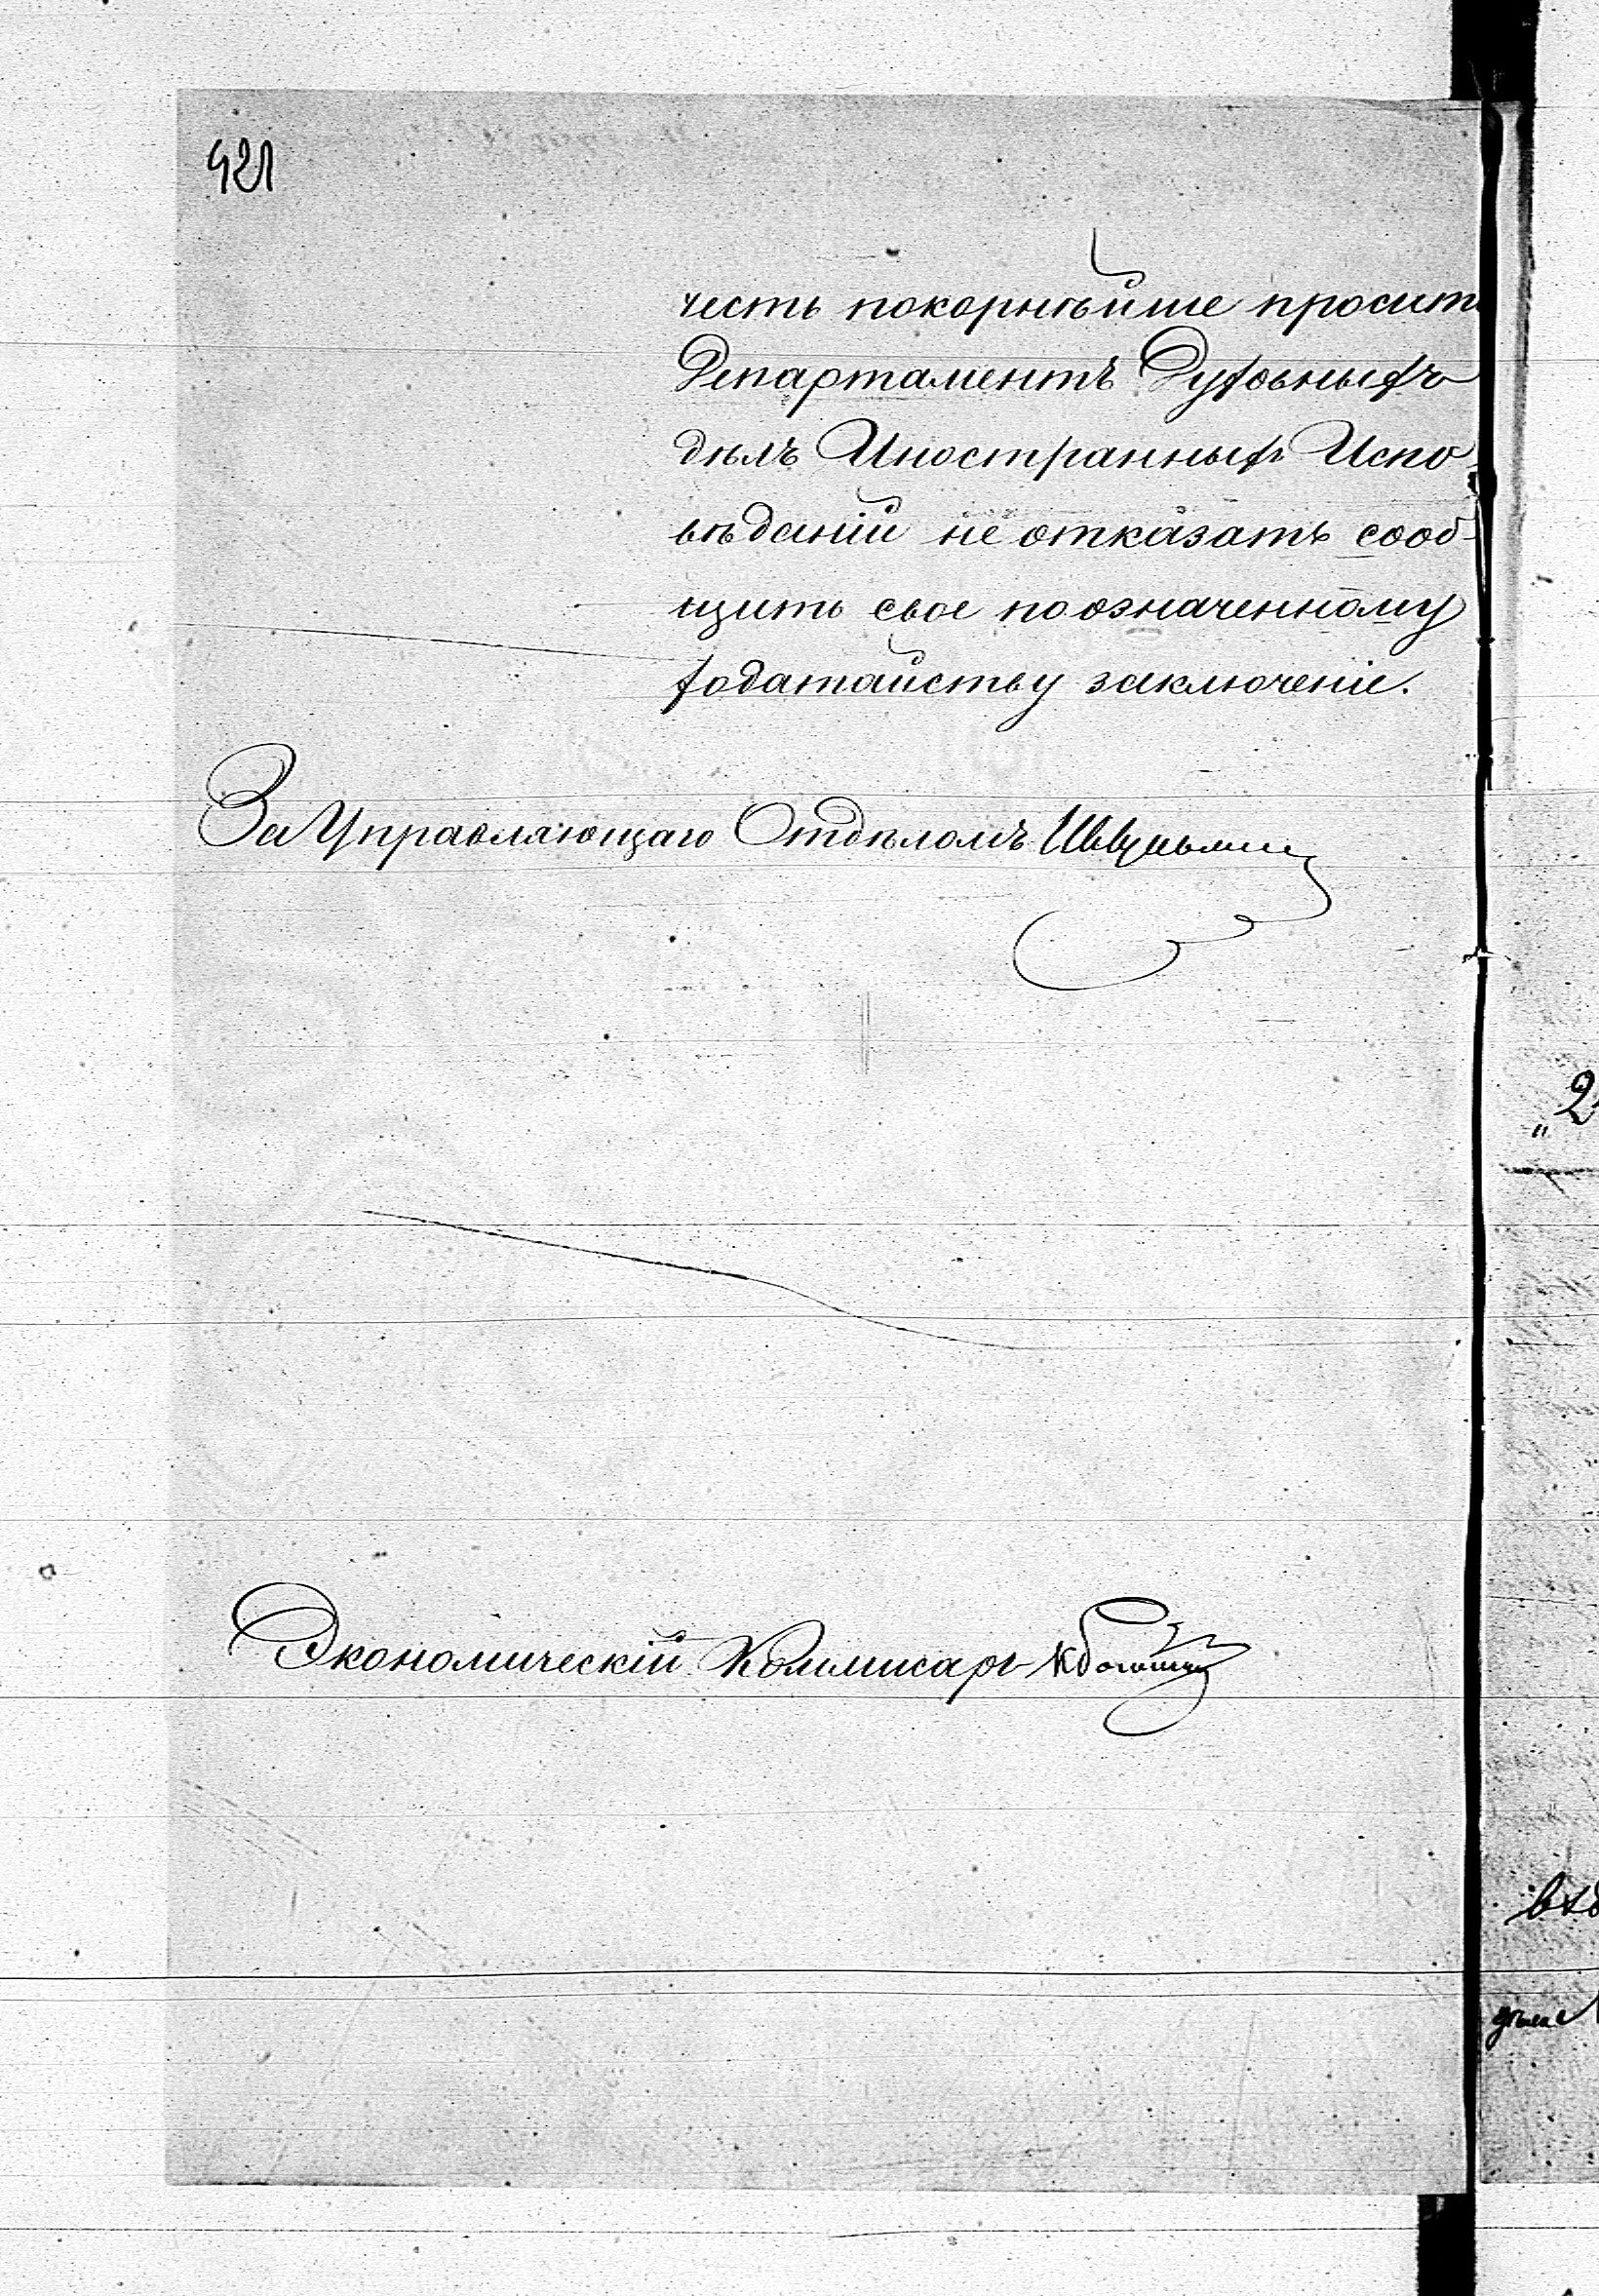 421
честь покорнѣйше просить
Департаментъ Духовныхъ
дѣлъ Иностранныхъ Испо-
вѣданій не отказать сооб-
щить свое по означенному
ходатайству заключеніе.
За Управляющаго Отдѣломъ
Экономическій Коммисаръ
„2